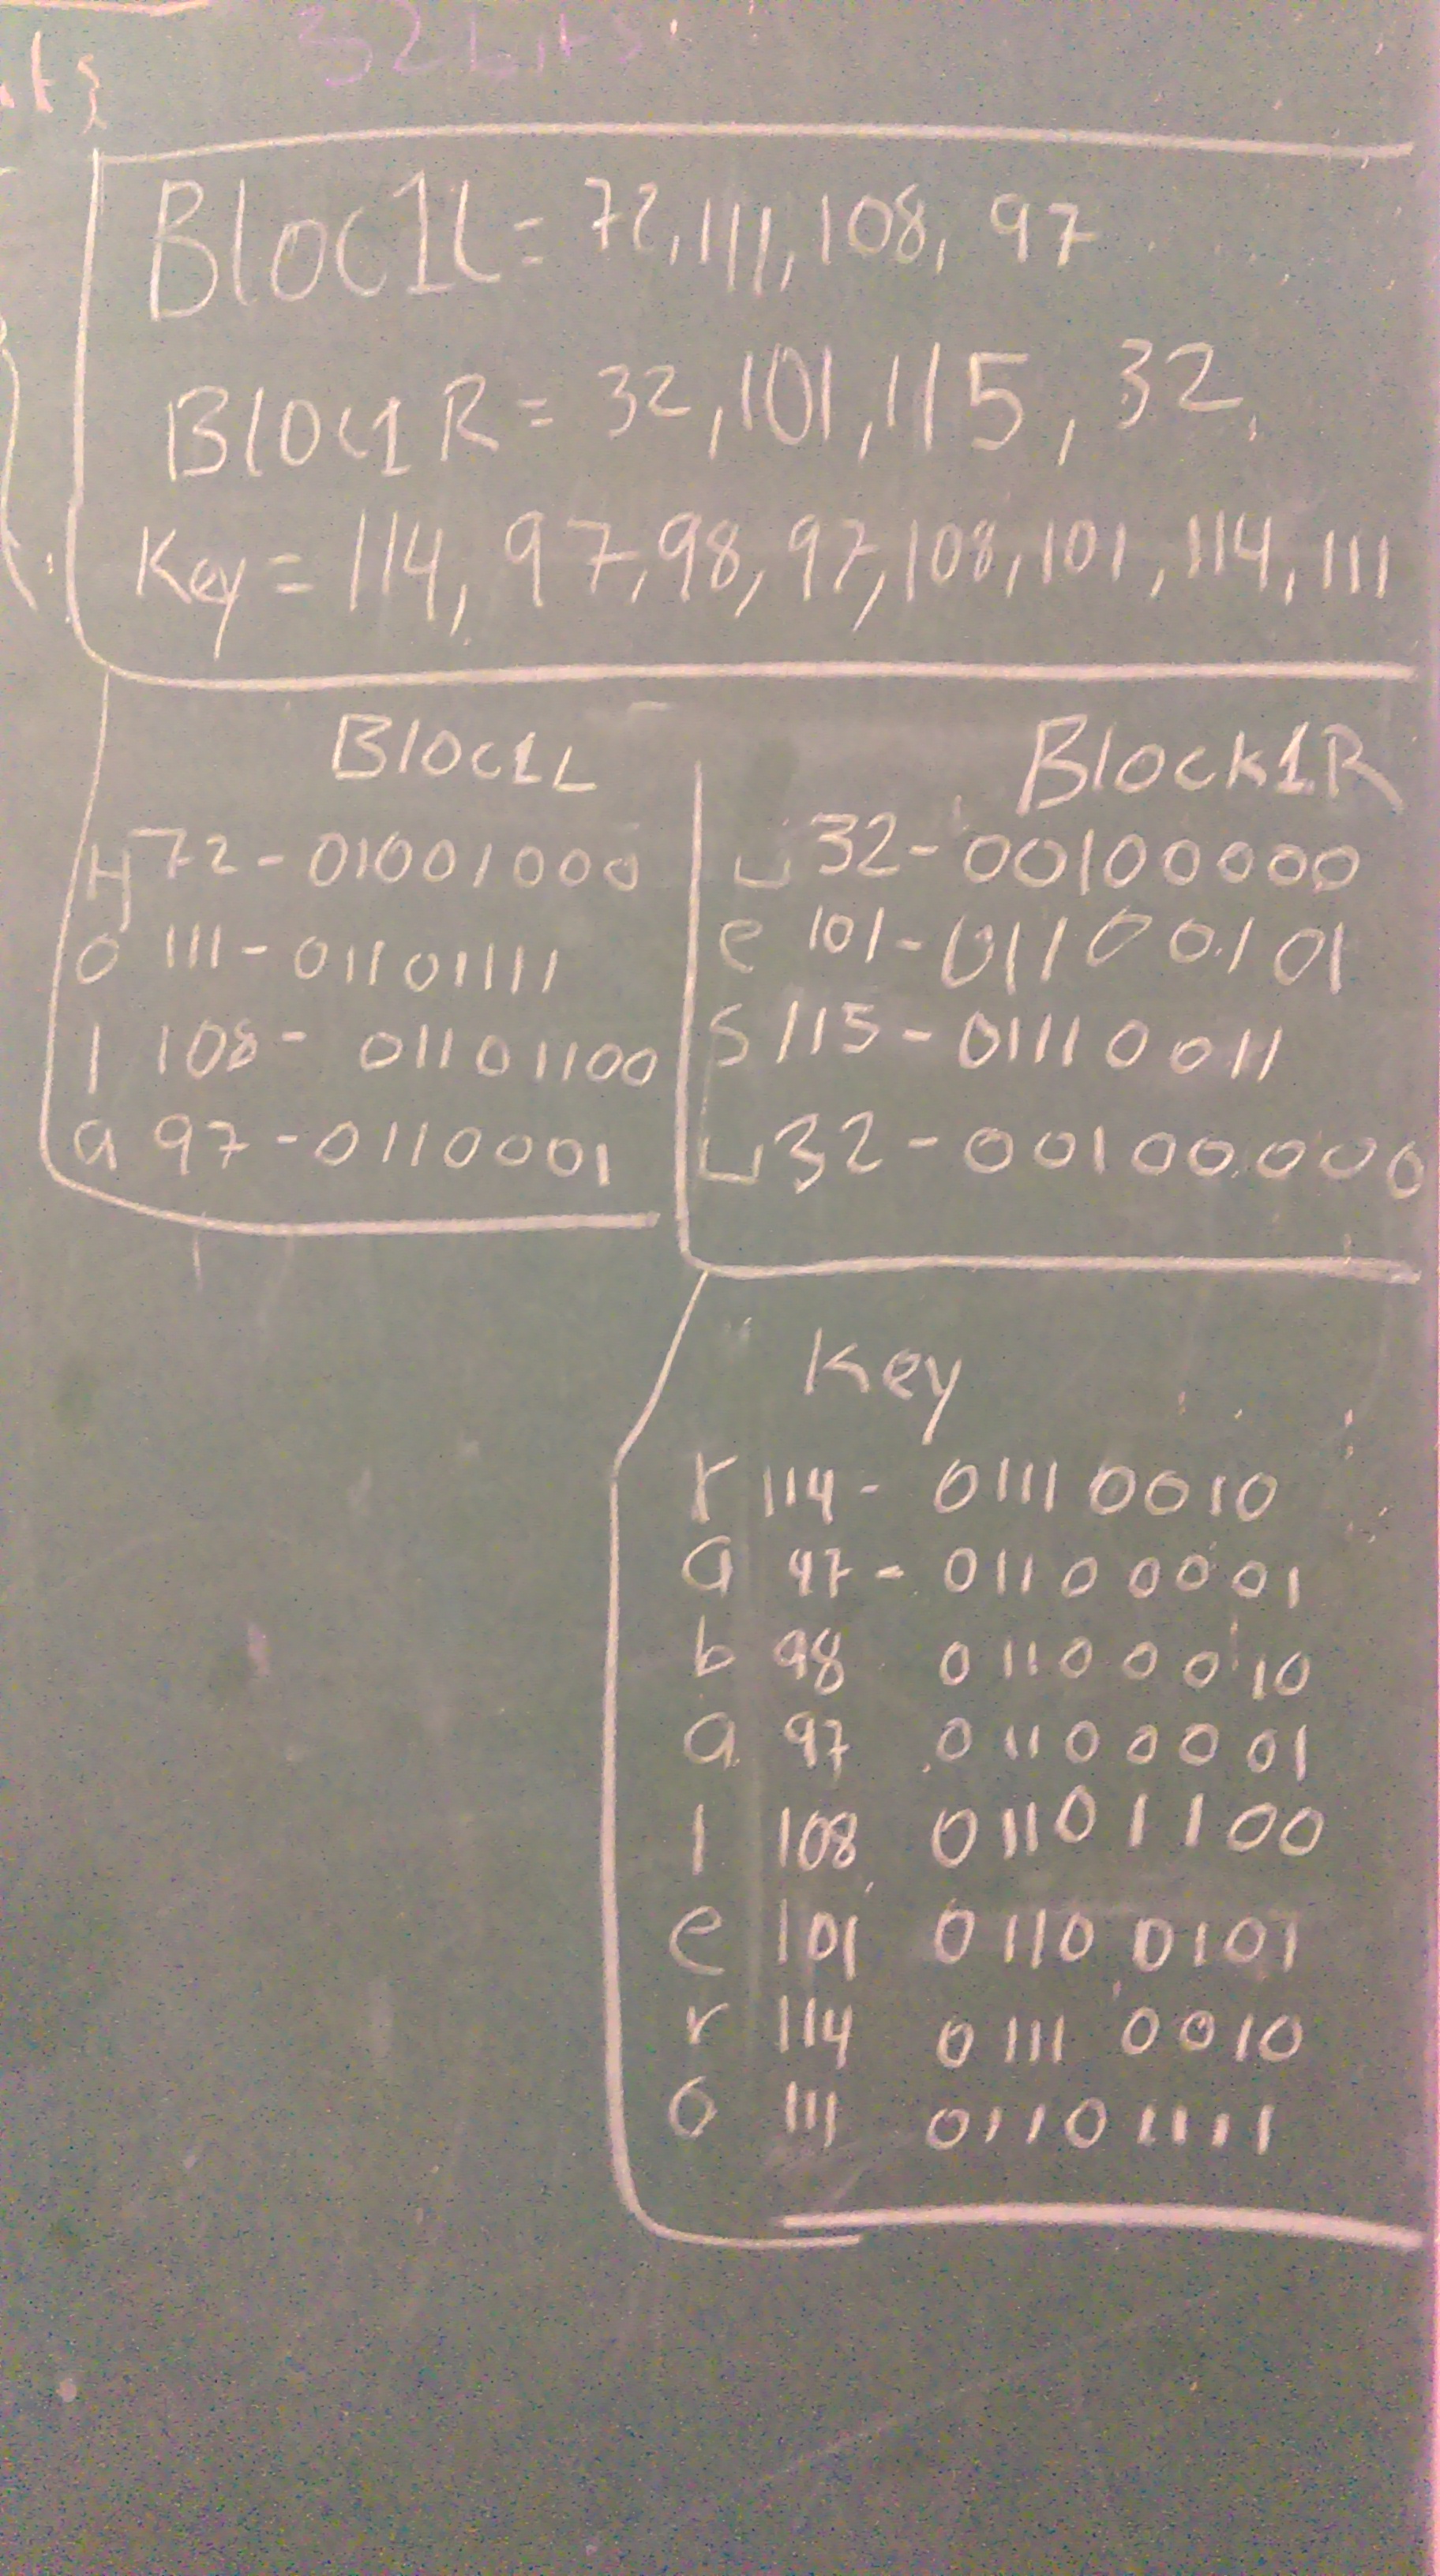 32bits
Bloc1L = 72,111,108, 97
Bloc1R = 32,101,115, 32,
Key = 114, 97,98,97,108,101,114,111
Bloc1L
H 72 - 01001000
o 111 - 01101111
l 108 - 01101100
a 97 - 0110001
Block1R
␣ 32 - 00100000
e 101 - 01100101
s 115 - 01110011
␣ 32 - 00100000
Key
r 114 - 01110010
a 97 - 01100001
b 98 01100010
a 97 01100001
l 108 01101100
e 101 01100101
r 114 01110010
o 111 01101111